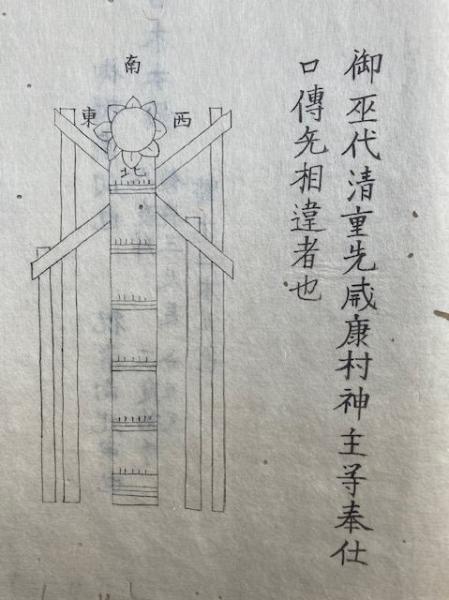 御巫代清重先戚康村神主等奉仕
口傳无相違者也
南
西
東
北